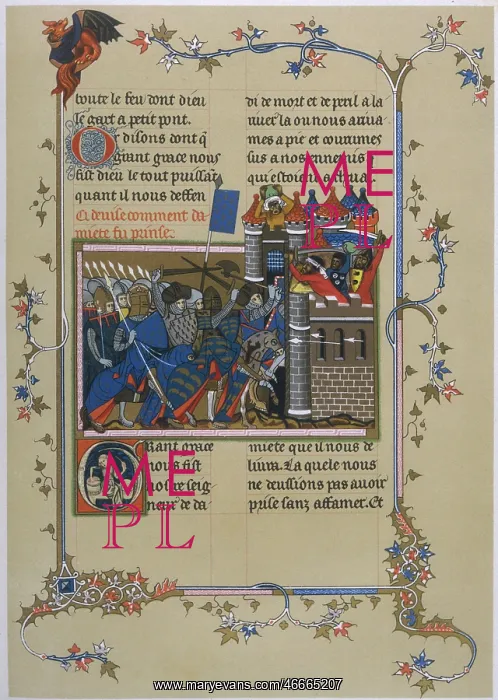 toute le feu dont dieu
le gart a petit pont.
Or disons dont q̃
grant grace nous
fist dieu le tout puissāt
quant il nous deffen
Ci deuise comment da
miete fu prinse.
di de mort et de peril a la
riuer la ou nous arriua
mes a pie et courumes
sus a nos
qui estoient a
ME
PL
Grant grace
nous fist
nostre seig
neur de da
miete que il nous de
liura. La quele nous
ne deussions pas auoir
prise sanz affamer. Et
ME
PL
www.maryevans.com/46665207